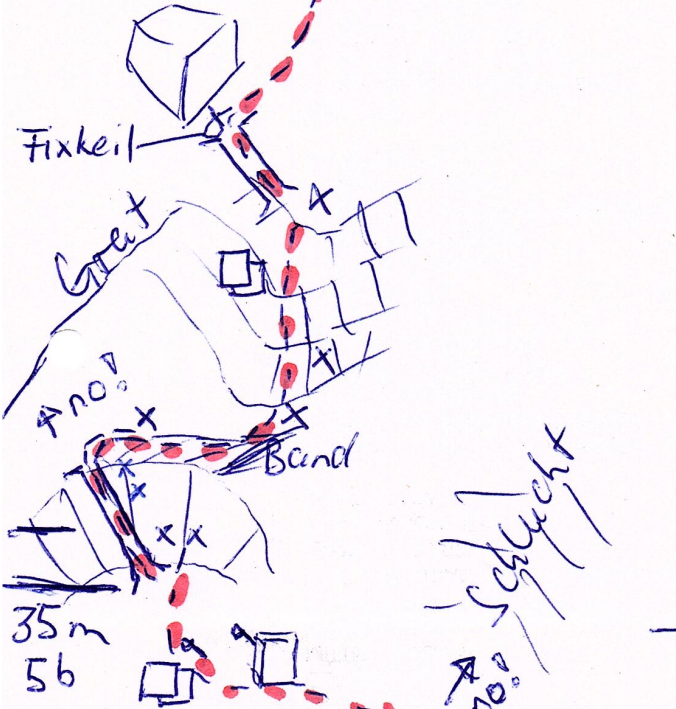 Fixkeil
Grat
no!
Band
Schlucht
35m
5b
no!